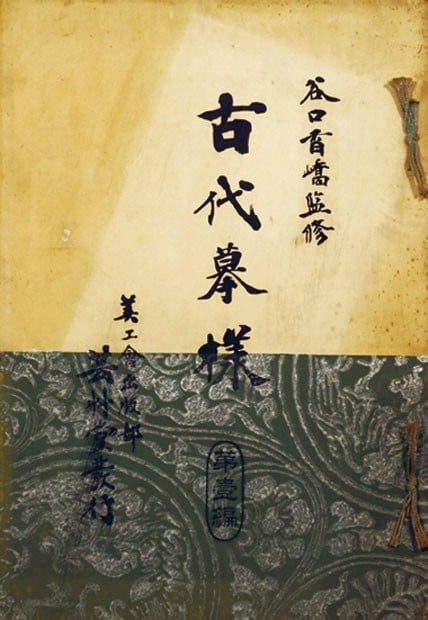 谷口香嶠監修
古代摹様
第壹編
美工會出版部
芸艸堂發行